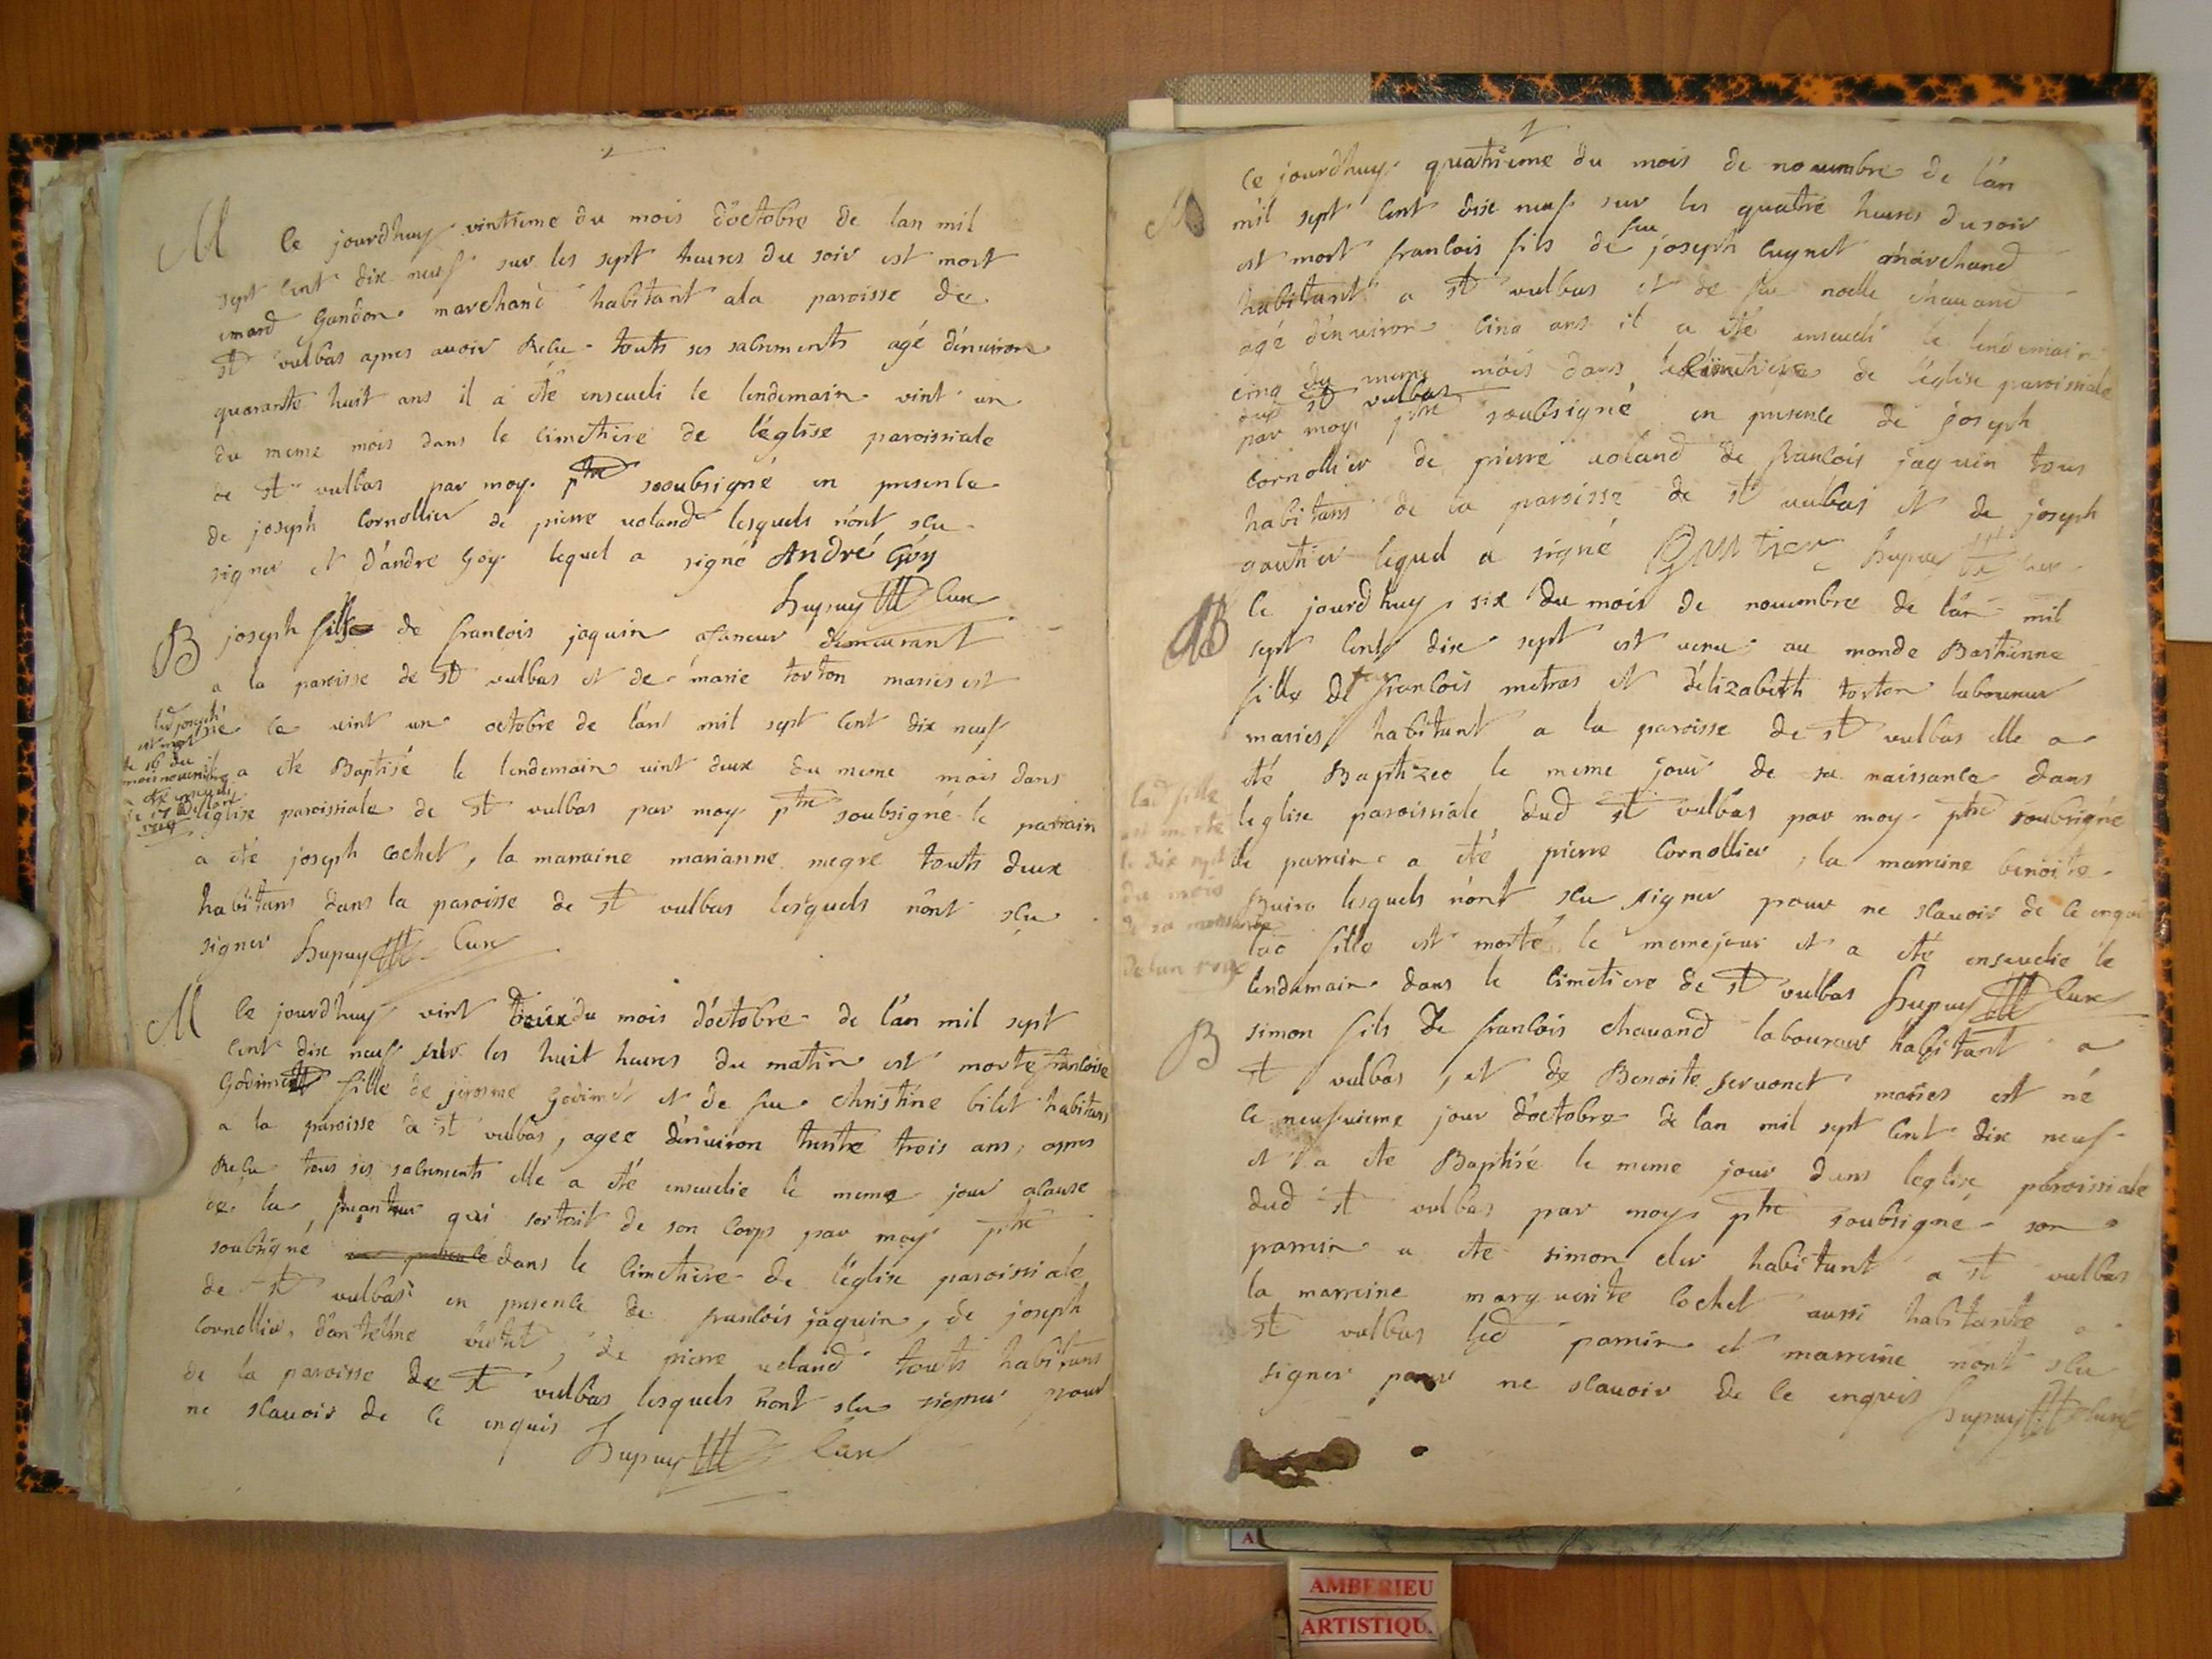 M
Ce jourdhuy vintieme du mois d'octobre de lan mil
sept cent dix neuf sur les sept heures du soir est mort
emard Gandon marchand habitant ala paroisse de
st vulbas apres avoir Reçu touts ses sacrements agé d'enuiron
quarante huit ans il a été enseueli le lendemain vint un
du meme mois dans le cimetiere de l'église paroissiale
de st vulbas par moy ptre soubsigné en presence
de joseph Cornollier de pierre uoland lesquels n'ont scu
signer et d'andre Goy lequel a signé André Gôy
Dupuy Curé
B
joseph fils de francois jaquin afaneur demeurant
a la paroisse de st vulbas et de marie torton mariés est
né le vint un octobre de l'an mil sept cent dix neuf
il a été Baptisé le lendemain vint deux du meme mois dans
l'église paroissiale de st vulbas par moy ptre soubsigné le parrain
a été joseph cochet, la marraine marianne negre touts deux
habitans dans la paroisse de st vulbas lesquels n'ont scu
signer Dupuy Curé
led joseph
est mort
le 16 du
mois nouembre
M
Ce jourdhuy vint deux du mois d'octobre de l'an mil sept
cent dix neuf sur les huit heures du matin est morte francoise
Godimet fille de jerosme Godimet et de feu christine bilet habitans
a la paroisse de st vulbas, agee d'enuiron trente trois ans, apres
Reçu tous ses sacrements elle a été enseuelie le meme jour acause
de la puanteur qui sortoit de son corps par moy ptre
soubsigné dans le cimetiere de l'église paroissiale
de st vulbas en presence de francois jaquin, de joseph
Cornollier, d'antelme, de pierre uoland touts habitans
de la paroisse de st vulbas lesquels n'ont scu signer pour
ne scauoir de ce enquis
Dupuy Curé
M
Ce jourdhuy quatrieme du mois de nouembre de l'an
mil sept cent dix neuf sur les quatre heures du soir
est mort francois fils de feu joseph cugnet marchand
habitant a st vulbas et de feu noelle chauand
agé d'enuiron cinq ans il a été enseueli le lendemain
cinq du meme mois dans le cimetiere de l'église paroissiale
dud st vulbas
par moy ptre soubsigné en presence de joseph
Cornollier de pierre uoland de francois jaquin tous
habitans de la paroisse de st vulbas et de joseph
gautier lequel a signé Gautier Dupuy
B
Ce jourdhuy six du mois de nouembre de l'an mil
sept cent dix sept est venu au monde Bastienne
fille de francois metras et d'élizabeth torton laboureur
mariés habitant a la paroisse de st vulbas elle a
été Baptizeé le meme jour de sa naissance dans
leglise paroissiale dud st vulbas par moy ptre soubsigné
le parrin a été pierre Cornollier, la marrine benoite
lesquels n'ont scu signer pour ne scauoir de ce enquis
lad fille est morte le meme jour et a été enseuelie le
lendemain dans le cimetiere de st vulbas Dupuy Curé
lad fille
est morte
le dix sept
du mois
de sa naissance
B
simon fils de francois chauand laboureur habitant a
st vulbas, et de Benoite seruonet mariés est né
le neufuieme jour d'octobre de lan mil sept cent dix neuf
et a ete Baptisé le meme jour dans leglise paroissiale
dud st vulbas par moy ptre soubsigné son
parrin a ete simon habitant a st vulbas
la marrine marguerite cochet aussi habitante a
st vulbas led parrin et marrine n'ont scu
signer pour ne scauoir de ce enquis Dupuy Curé
AMBERIEU
ARTISTIQU